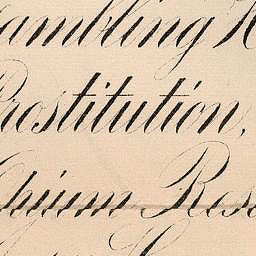 Gambling H
Prostitution,
Opium Res